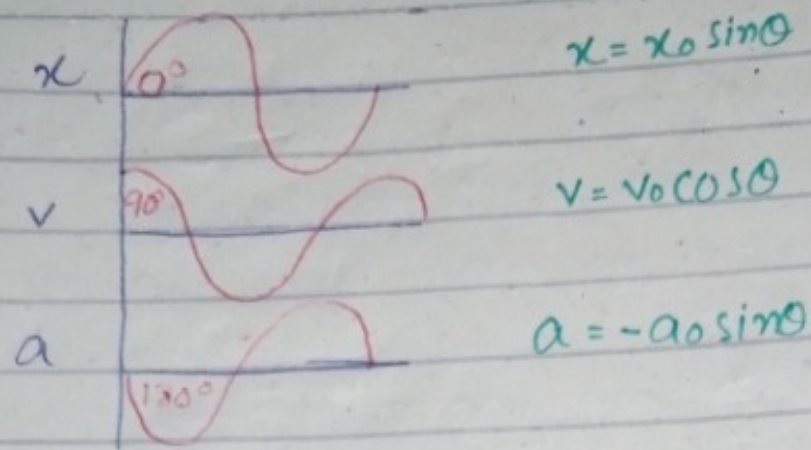 x 0° x = x₀ sinθ
v 90° v = v₀ cosθ
a 180° a = -a₀ sinθ